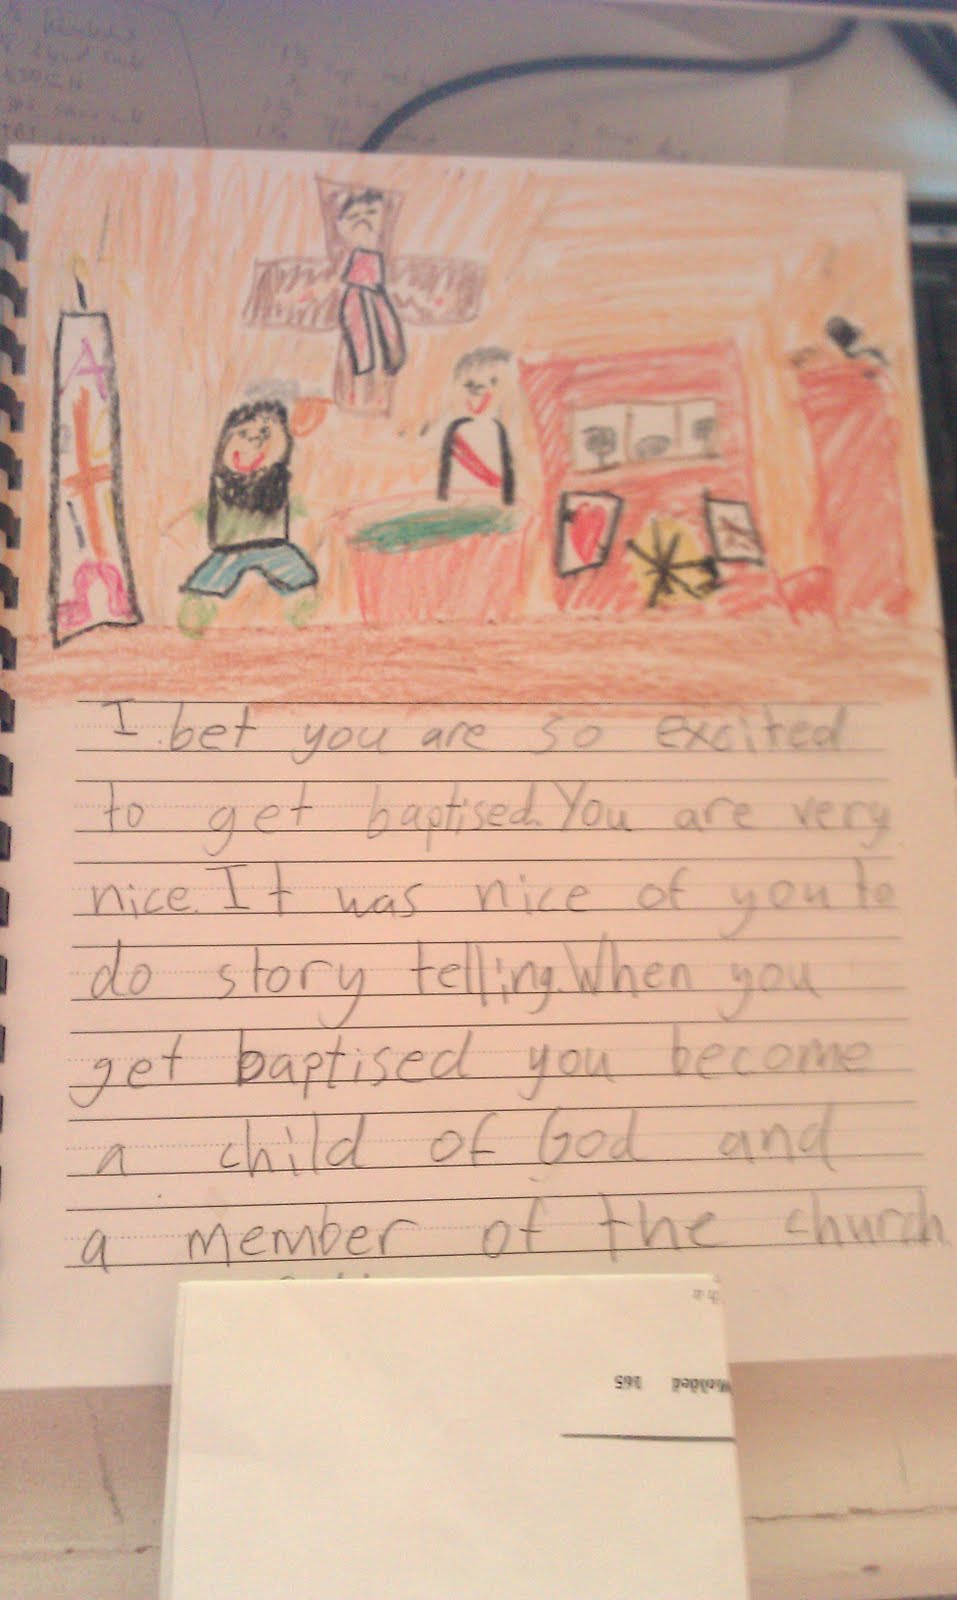 I bet you are so excited
to get baptised. You are very
nice. It was nice of you to
do story telling. When you
get baptised you become
a child of God and
a member of the church
365